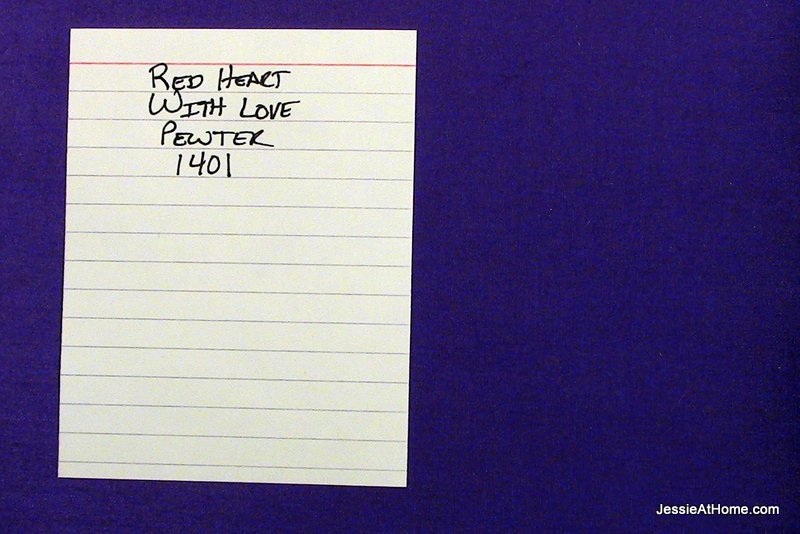 RED HEART
WITH LOVE
PEWTER
1401
JessieAtHome.com